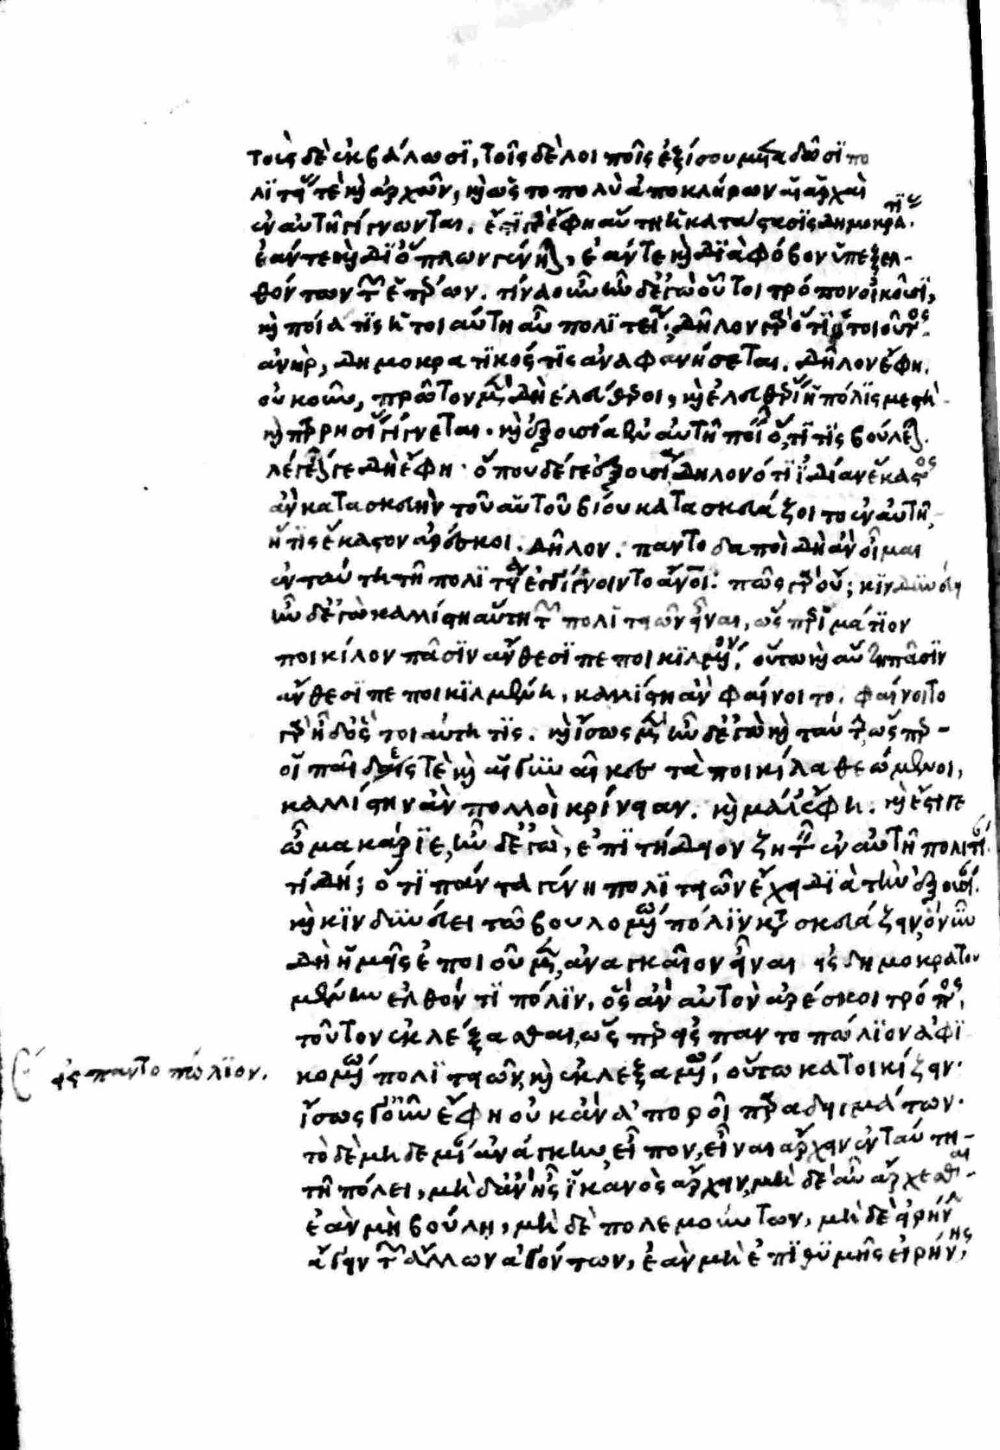 τοὺς δὲ ἐκβάλωσι, τοῖς δὲ λοιποῖς ἐξίσου μεταδῶσι πο
λιτείας τὲ καὶ ἀρχῶν, καὶ ὡς τὸ πολὺ ἀπὸ κλήρων αἱ ἀρχαὶ
ἐν αὐτῇ γίγνωνται. ἔστι γὰρ ἔφη αὕτη ἡ κατάστασις δημοκρατίας.
ἐάν τε καὶ δι' ὅπλων γένηται, ἐάν τε καὶ διὰ φόβον ὑπεξελ-
θόντων τῶν ἑτέρων. τίνα οὖν ἦν δ' ἐγὼ οὗτοι τρόπον οἰκοῦσι,
καὶ ποία τις ἡ τοιαύτη αὖ πολιτεία. δῆλον γὰρ ὅτι ὁ τοιοῦτος
ἀνὴρ, δημοκρατικός τις ἀναφανήσεται. δῆλον ἔφη.
οὐκοῦν, πρῶτον μὲν δὴ ἐλεύθεροι, καὶ ἐλευθερίας ἡ πόλις μεστὴ
καὶ παρρησίας γίγνεται. καὶ ἐξουσία ἐν αὐτῇ ποιεῖν ὅ,τι τίς βούλεται.
λέγεταί γε δὴ ἔφη. ὅπου δέ γε ἐξουσία, δῆλον ὅτι ἰδίαν ἕκαστος
ἂν κατασκευὴν τοῦ αὑτοῦ βίου κατασκευάζοιτο ἐν αὐτῇ,
ἥτις ἕκαστον ἀρέσκοι. δῆλον. παντοδαποὶ δὴ ἂν οἶμαι
ἐν ταύτῃ τῇ πολιτείᾳ ἐγγίγνοιντο ἄνθρωποι. πῶς γὰρ οὔ; κινδυνεύει
ἦν δ' ἐγὼ καλλίστη αὕτη τῶν πολιτειῶν εἶναι, ὥσπερ ἱμάτιον
ποικίλον πᾶσιν ἄνθεσι πεποικιλμένον, οὕτω καὶ αὕτη πᾶσιν
ἄνθεσι πεποικιλμένη, καλλίστη ἂν φαίνοιτο. φαίνοιτο
γὰρ ἡδύς τοιαύτη τις. καὶ ἴσως μὲν ἦν δ' ἐγὼ καὶ ταύτην, ὥσπερ
οἱ παῖδές τε καὶ αἱ γυναῖκες τὰ ποικίλα θεώμενοι,
καλλίστην ἂν πολλοὶ κρίνειαν. καὶ μάλ' ἔφη. καὶ ἔστι γε
ὦ μακάριε, ἦν δ' ἐγὼ, ἐπιτήδειον ζητεῖν ἐν αὐτῇ πολιτείαν.
τί δή; ὅτι πάντα γένη πολιτειῶν ἔχει διὰ τὴν ἐξουσίαν.
καὶ κινδυνεύει τῷ βουλομένῳ πόλιν κατασκευάζειν, ὃ νῦν
δὴ ἡμεῖς ἐποιοῦμεν, ἀναγκαῖον εἶναι εἰς δημοκρατου
μένην ἐλθόντι πόλιν, ὃς ἂν αὐτὸν ἀρέσκοι τρόπος,
τοῦτον ἐκλέξασθαι, ὥσπερ εἰς παντοπώλιον ἀφι
κομένῳ πολιτειῶν, καὶ ἐκλεξαμένῳ, οὕτω κατοικίζειν.
ἴσως γοῦν ἔφη οὐκ ἂν ἀποροῖ παραδειγμάτων.
τὸ δὲ μηδεμίαν ἀνάγκην, εἶπον, εἶναι ἄρχειν ἐν ταύτῃ
τῇ πόλει, μὴ δ' ἂν ᾖς ἱκανὸς ἄρχειν, μὴ δὲ αὖ ἄρχεσθαι
ἐὰν μὴ βούλῃ, μὴ δὲ πολεμούντων, μὴ δὲ εἰρήνην
ἄγειν τῶν ἄλλων ἀγόντων, ἐὰν μὴ ἐπιθυμῇς εἰρήνης,
εἰς παντοπώλιον.